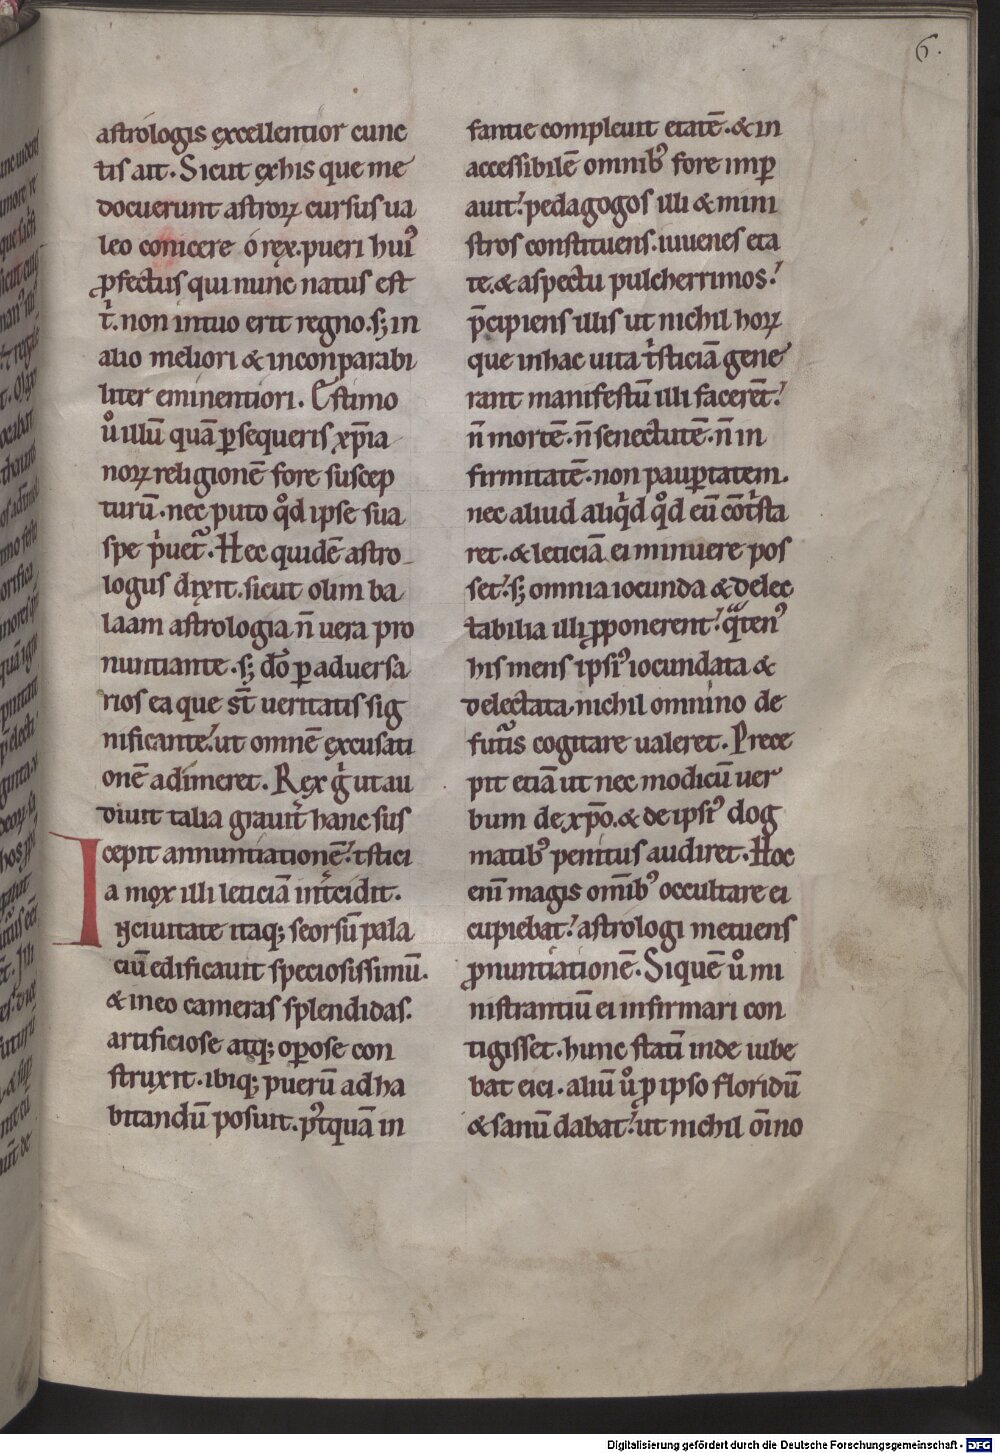 6.
astrologis excellentior cunc
tis ait. Sicut ex his que me
docuerunt astroꝝ cursus ua
leo conicere o rex. pueri huiꝰ
ꝓfectus qui nunc natus est
t͛. non in tuo erit regno. sꝫ in
alio meliori & inconparabi
liter eminentiori. Estimo
uͦ illū quā ꝑsequeris xp̄ia
noꝝ religionē fore suscep
turū. nec puto qͦd ipse sua
spe p͛uet᷑. Hec quidē astro
logus dixit. sicut olim ba
laam astrologia n̄ uera pro
nuntiante. sꝫ dō ꝑ aduersa
rios ea que st̄ ueritatis sig
nificante. ut omnē excusati
onē adimeret. Rex gͥ ut au
diuit talia grauit͛ hanc sus
cepit annuntiationē. tͥstici
a mox illi leticiā int͛cidit.
In ciuitate itaqꝫ seorsū pala
ciū edificauit speciosissimū.
& in eo cameras splendidas.
artificiose atqꝫ oꝑose con
struxit. ibiqꝫ puerū ad ha
bitandū posuit. pꝰtquā in
fantie compleuit etatē. & in
accessibilē omnibꝰ fore imꝑ
auit. pedagogos illi & mini
stros constituens. iuuenes eta
te. & aspectu pulcherrimos.
p̄cipiens illis ut nichil hoꝝ
que in hac uita tͥsticiā gene
rant manifestū illi facerēt.
n̄ mortē. n̄ senectutē. n̄ in
firmitatē. non pauꝑtatem.
nec aliud aliqͥd qͦd eū cōtͥsta
ret. & leticiā ei minuere pos
set. sꝫ omnia iocunda & delec
tabilia illi ꝓponerent. qͣtenꝰ
his mens ipsiꝰ iocundata &
delectata. nichil omnino de
futuris cogitare ualeret. Prece
pit etiā ut nec modicū uer
bum de xp̄o. & de ipsiꝰ dog
matibꝰ penitus audiret. Hoc
eni͞ magis omībꝰ occultare ei
cupiebat. astrologi metuens
ꝓnuntiationē. Si quē uͦ mi
nistrantiū ei infirmari con
tigisset. hunc statī inde iube
bat eici. aliū uͦ ꝓ ipso floridū
& sanū dabat. ut nichil oīno
Digitalisierung gefördert durch die Deutsche Forschungsgemeinschaft - DFG